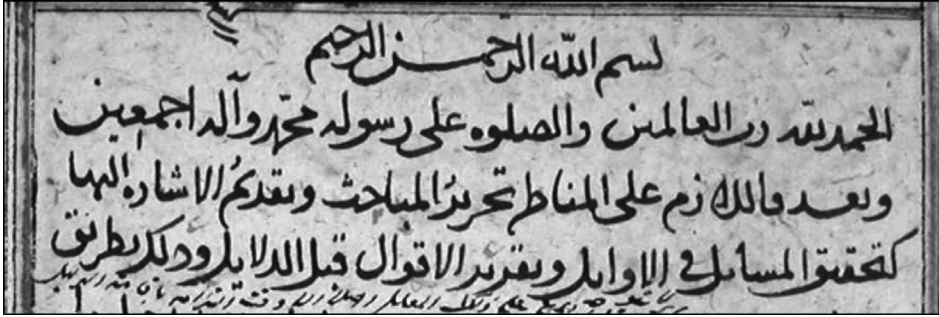 بسم الله الرحمن الرحيم
الحمد لله رب العالمين والصلوه على رسوله محمد وآله اجمعين
وبعد فاللازم على المناظر تحرير المباحث وتقديم الاشاره اليها
كتحقيق المسايل في الاوايل وتقرير الاقوال قبل الدلايل وذلك بطريق